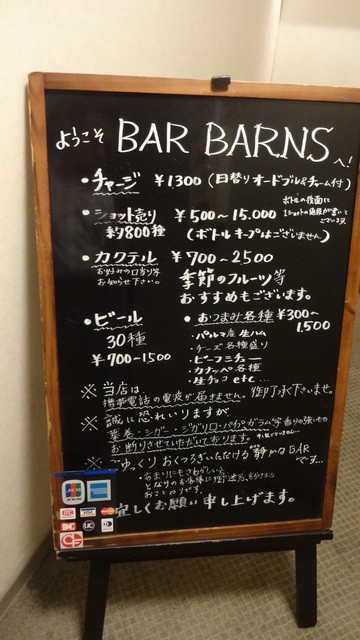 ようこそ BAR BARNS へ!
・チャージ ¥1300 (日替りオードブル&チャーム付)
ボトルの後面に
1ショットの値段が書いて
・ショット売り ¥500~15.000
約800種 (ボトルキープはございません)
・カクテル ¥700~2500
お好みの口当り等
お知らせ下さい。
季節のフルーツ等
おすすめもございます。
・ビール
30種
¥700~1500
・おつまみ各種 ¥300~
1500
・パルマ産生ハム
・チーズ各種盛り
・ビーフシチュー
・カナッペ各種
・生チョコ etc...
※ 当店は
携帯電話の電波が届きません。御了承下さいませ。
※ 誠に恐れいりますが
葉巻・シガー・シガリロ・パイプ・ガラム等香りの強いもの
お断りさせていただいております。
※ ごゆっくりおくつろぎいただける静かなBAR
です...
・あまりにもさわがしい、
となりのお客様に御迷惑をおかけする
おことわりです。
宜しくお願い申し上げます。
JCB
AMERICAN EXPRESS
VISA
MasterCard
DC
UC